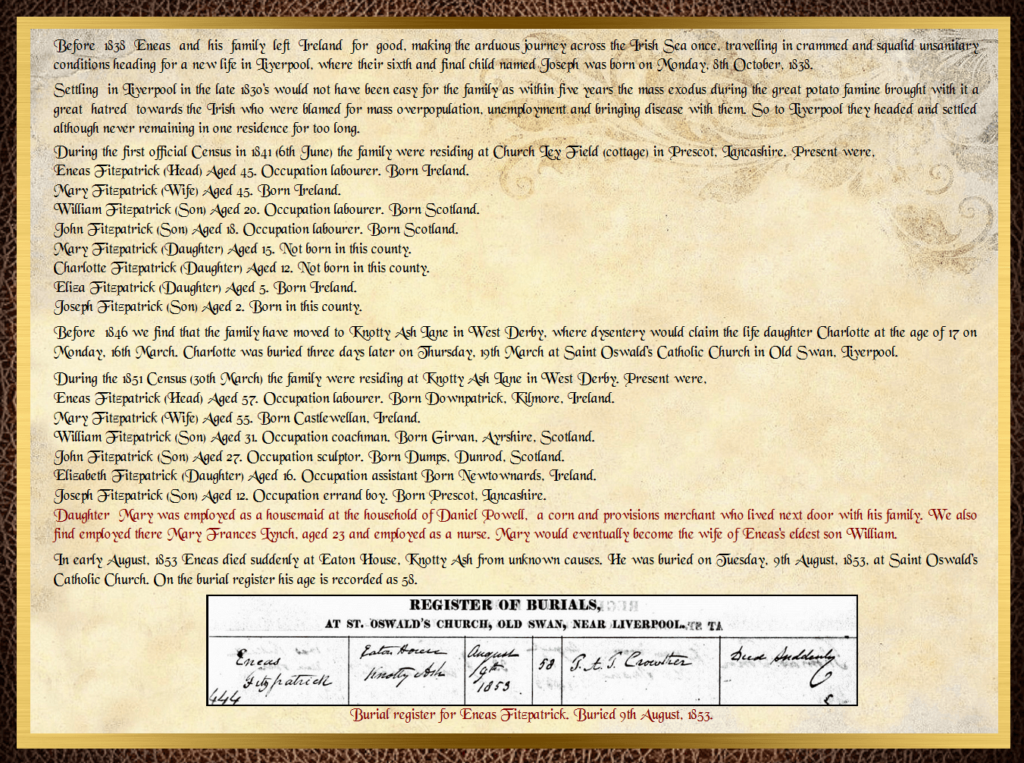 Before 1838 Eneas and his family left Ireland for good, making the arduous journey across the Irish Sea once, travelling in crammed and squalid unsanitary
conditions heading for a new life in Liverpool, where their sixth and final child named Joseph was born on Monday, 8th October, 1838.
Settling in Liverpool in the late 1830's would not have been easy for the family as within five years the mass exodus during the great potato famine brought with it a
great hatred towards the Irish who were blamed for mass overpopulation, unemployment and bringing disease with them. So to Liverpool they headed and settled
although never remaining in one residence for too long.
During the first official Census in 1841 (6th June) the family were residing at Church Ley Field (cottage) in Prescot, Lancashire. Present were,
Eneas Fitzpatrick (Head) Aged 45. Occupation labourer. Born Ireland.
Mary Fitzpatrick (Wife) Aged 45. Born Ireland.
William Fitzpatrick (Son) Aged 20. Occupation labourer. Born Scotland.
John Fitzpatrick (Son) Aged 18. Occupation labourer. Born Scotland.
Mary Fitzpatrick (Daughter) Aged 15. Not born in this county.
Charlotte Fitzpatrick (Daughter) Aged 12. Not born in this county.
Eliza Fitzpatrick (Daughter) Aged 5. Born Ireland.
Joseph Fitzpatrick (Son) Aged 2. Born in this county.
Before 1846 we find that the family have moved to Knotty Ash Lane in West Derby, where dysentery would claim the life daughter Charlotte at the age of 17 on
Monday, 16th March. Charlotte was buried three days later on Thursday, 19th March at Saint Oswald's Catholic Church in Old Swan, Liverpool.
During the 1851 Census (30th March) the family were residing at Knotty Ash Lane in West Derby. Present were,
Eneas Fitzpatrick (Head) Aged 57. Occupation labourer. Born Downpatrick, Kilmore, Ireland.
Mary Fitzpatrick (Wife) Aged 55. Born Castlewellan, Ireland.
William Fitzpatrick (Son) Aged 31. Occupation coachman. Born Girvan, Ayrshire, Scotland.
John Fitzpatrick (Son) Aged 27. Occupation sculptor. Born Dumps, Dunrod, Scotland.
Elizabeth Fitzpatrick (Daughter) Aged 16. Occupation assistant Born Newtownards, Ireland.
Joseph Fitzpatrick (Son) Aged 12. Occupation errand boy. Born Prescot, Lancashire.
Daughter Mary was employed as a housemaid at the household of Daniel Powell, a corn and provisions merchant who lived next door with his family. We also
find employed there Mary Frances Lynch, aged 23 and employed as a nurse. Mary would eventually become the wife of Eneas's eldest son William.
In early August, 1853 Eneas died suddenly at Eaton House, Knotty Ash from unknown causes. He was buried on Tuesday, 9th August, 1853, at Saint Oswald's
Catholic Church. On the burial register his age is recorded as 58.
REGISTER OF BURIALS,
AT ST. OSWALD'S CHURCH, OLD SWAN, NEAR LIVERPOOL.
Eneas Eaton House August 58 Crowther Died Suddenly
Fitzpatrick Knotty Ash 9th
444 1853
Burial register for Eneas Fitzpatrick. Buried 9th August, 1853.